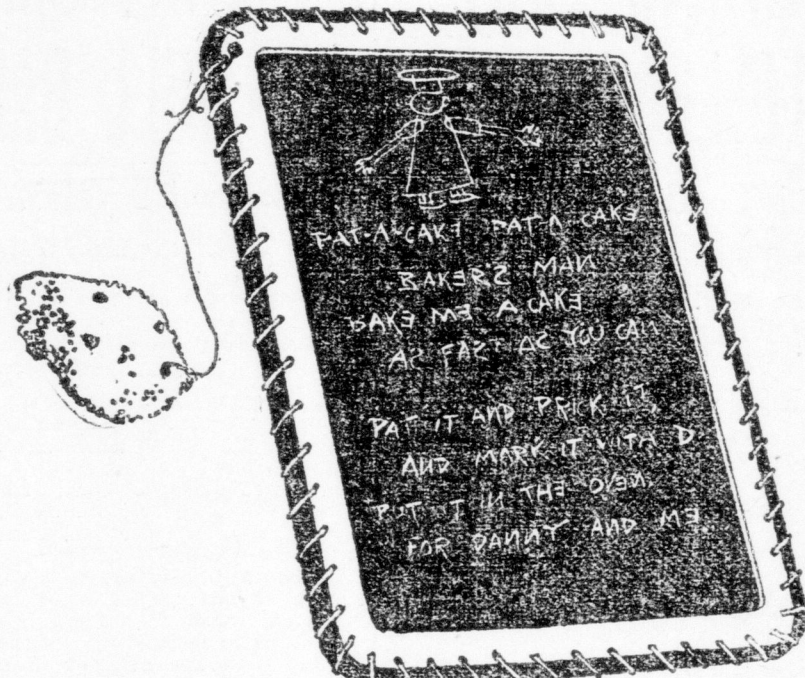 PAT-A-CAKE PAT-A-CAKE
BAKER'S MAN
BAKE ME A CAKE
AS FAST AS YOU CAN
PAT IT AND PRICK IT,
AND MARK IT WITH D
PUT IT IN THE OVEN,
FOR DANNY AND ME.